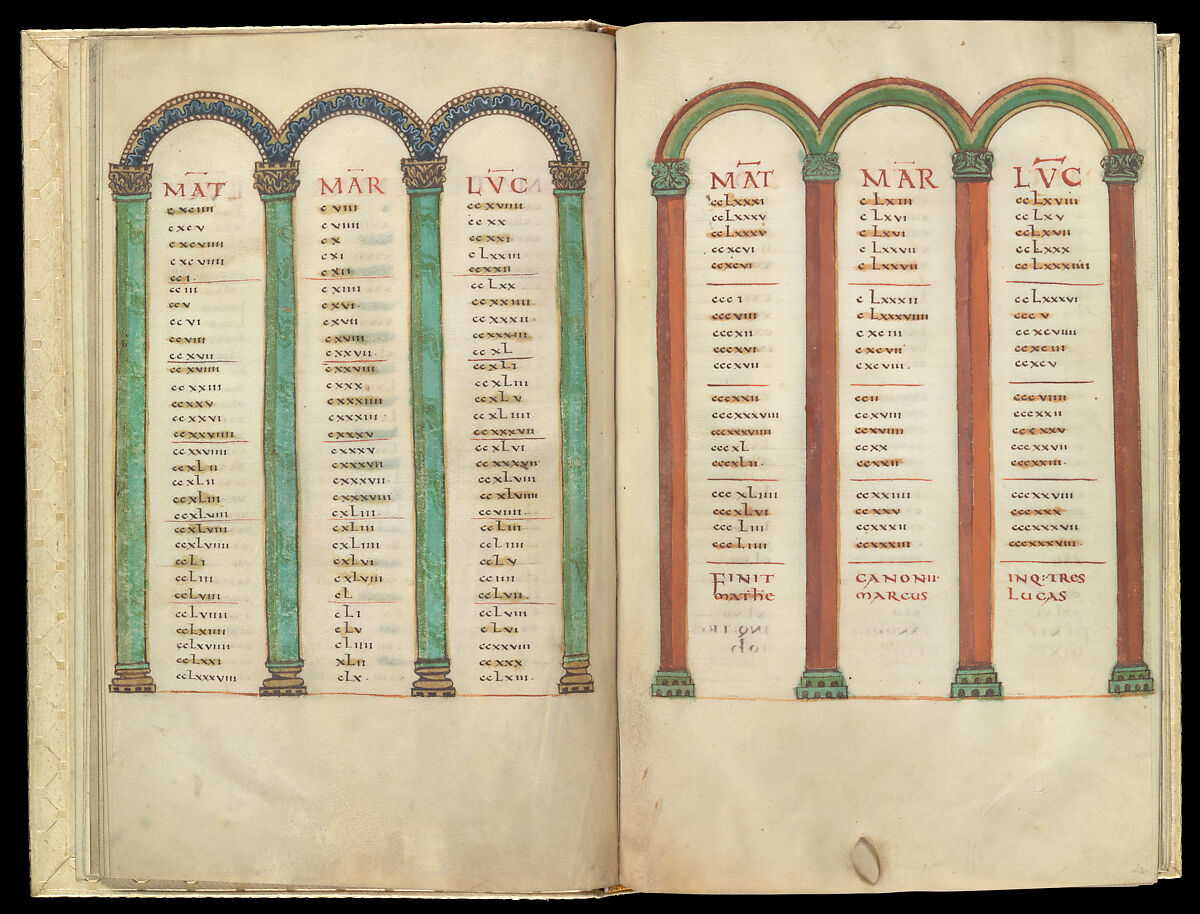 MAT
cxciiii
cxcv
cxcviiii
cxcviiii
cci
cciii
ccv
ccvi
ccviii
ccxvii
ccxviiii
ccxxiii
ccxxv
ccxxvi
ccxxviiii
ccxxviiii
ccxLii
ccxLii
ccxLiii
ccxLviii
ccxLviii
ccxLviiii
ccLi
ccLiii
ccLviii
ccLviiii
ccLxiiii
ccLxviiii
ccLxxi
ccLxxxviii
MAR
cviii
cviiii
cx
cxi
cxii
cxiiii
cxvi
cxvii
cxviii
cxxvii
cxxviii
cxxx
cxxxiiii
cxxxiii
cxxxv
cxxxv
cxxxvii
cxxxvii
cxxxviii
cxLiii
cxLiii
cxLiiii
cxLvi
cxLviii
cL
cLi
cLv
cLiiii
xLii
cLx
LVC
ccxviiii
ccxx
ccxxi
cLxxiii
ccxxii
ccLxx
ccxxiiii
ccxxxii
ccxxxiii
ccxL
ccxLi
ccxLiii
ccxLv
ccxLiiii
ccxxxvii
ccxLvi
ccxLviii
ccxLviiii
ccviiii
ccLiii
cLiiii
ccLv
cciiii
ccLvii
ccLviii
cLvi
ccxxviii
ccxxx
ccLxiii
MAT
ccLxxxi
ccLxxxv
ccLxxxv
ccxcvi
ccxcvi
ccci
cccviii
cccxii
cccxvi
cccxvii
cccxxii
cccxxxviii
cccxxxviiii
cccxL
cccxLii
cccxLiiii
cccxLvi
cccLiii
cccLiiii
FINIT
mathe
MAR
cLxiii
cLxvi
cLxvi
cLxxvii
cLxxvii
cLxxxii
cLxxxviiii
cxciii
cxcvii
cxcviii
ccii
ccxviii
ccxviiii
ccxx
ccxxii
ccxxiiii
ccxxv
ccxxxii
ccxxxiii
CANON II
marcus
LVC
ccLxviii
ccLxv
ccLxvii
ccLxxx
ccLxxxiiii
ccLxxxvi
cccv
ccxcviiii
ccxciii
ccxcv
cccviiii
cccxxii
cccxxv
cccxxvii
cccxxiii
cccxxviii
cccxxx
cccxxxvii
cccxxxviii
INQ:TRES
LUCAS